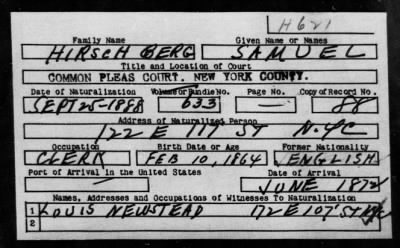 H621
Family Name Given Name or Names
HIRSCHBERG SAMUEL
Title and Location of Court
COMMON PLEAS COURT. NEW YORK COUNTY.
Date of Naturalization Volume or Bundle No. Page No. Copy of Record No.
SEPT 25-1888 633 — 88
Address of Naturalized Person
122 E 117 ST N.Y.C
Occupation Birth Date or Age Former Nationality
CLERK FEB 10, 1864 ENGLISH
Port of Arrival in the United States Date of Arrival
— JUNE 1872
Names, Addresses and Occupations of Witnesses To Naturalization
1 LOUIS NEWSTEAD 172 E 107 ST NYC
2